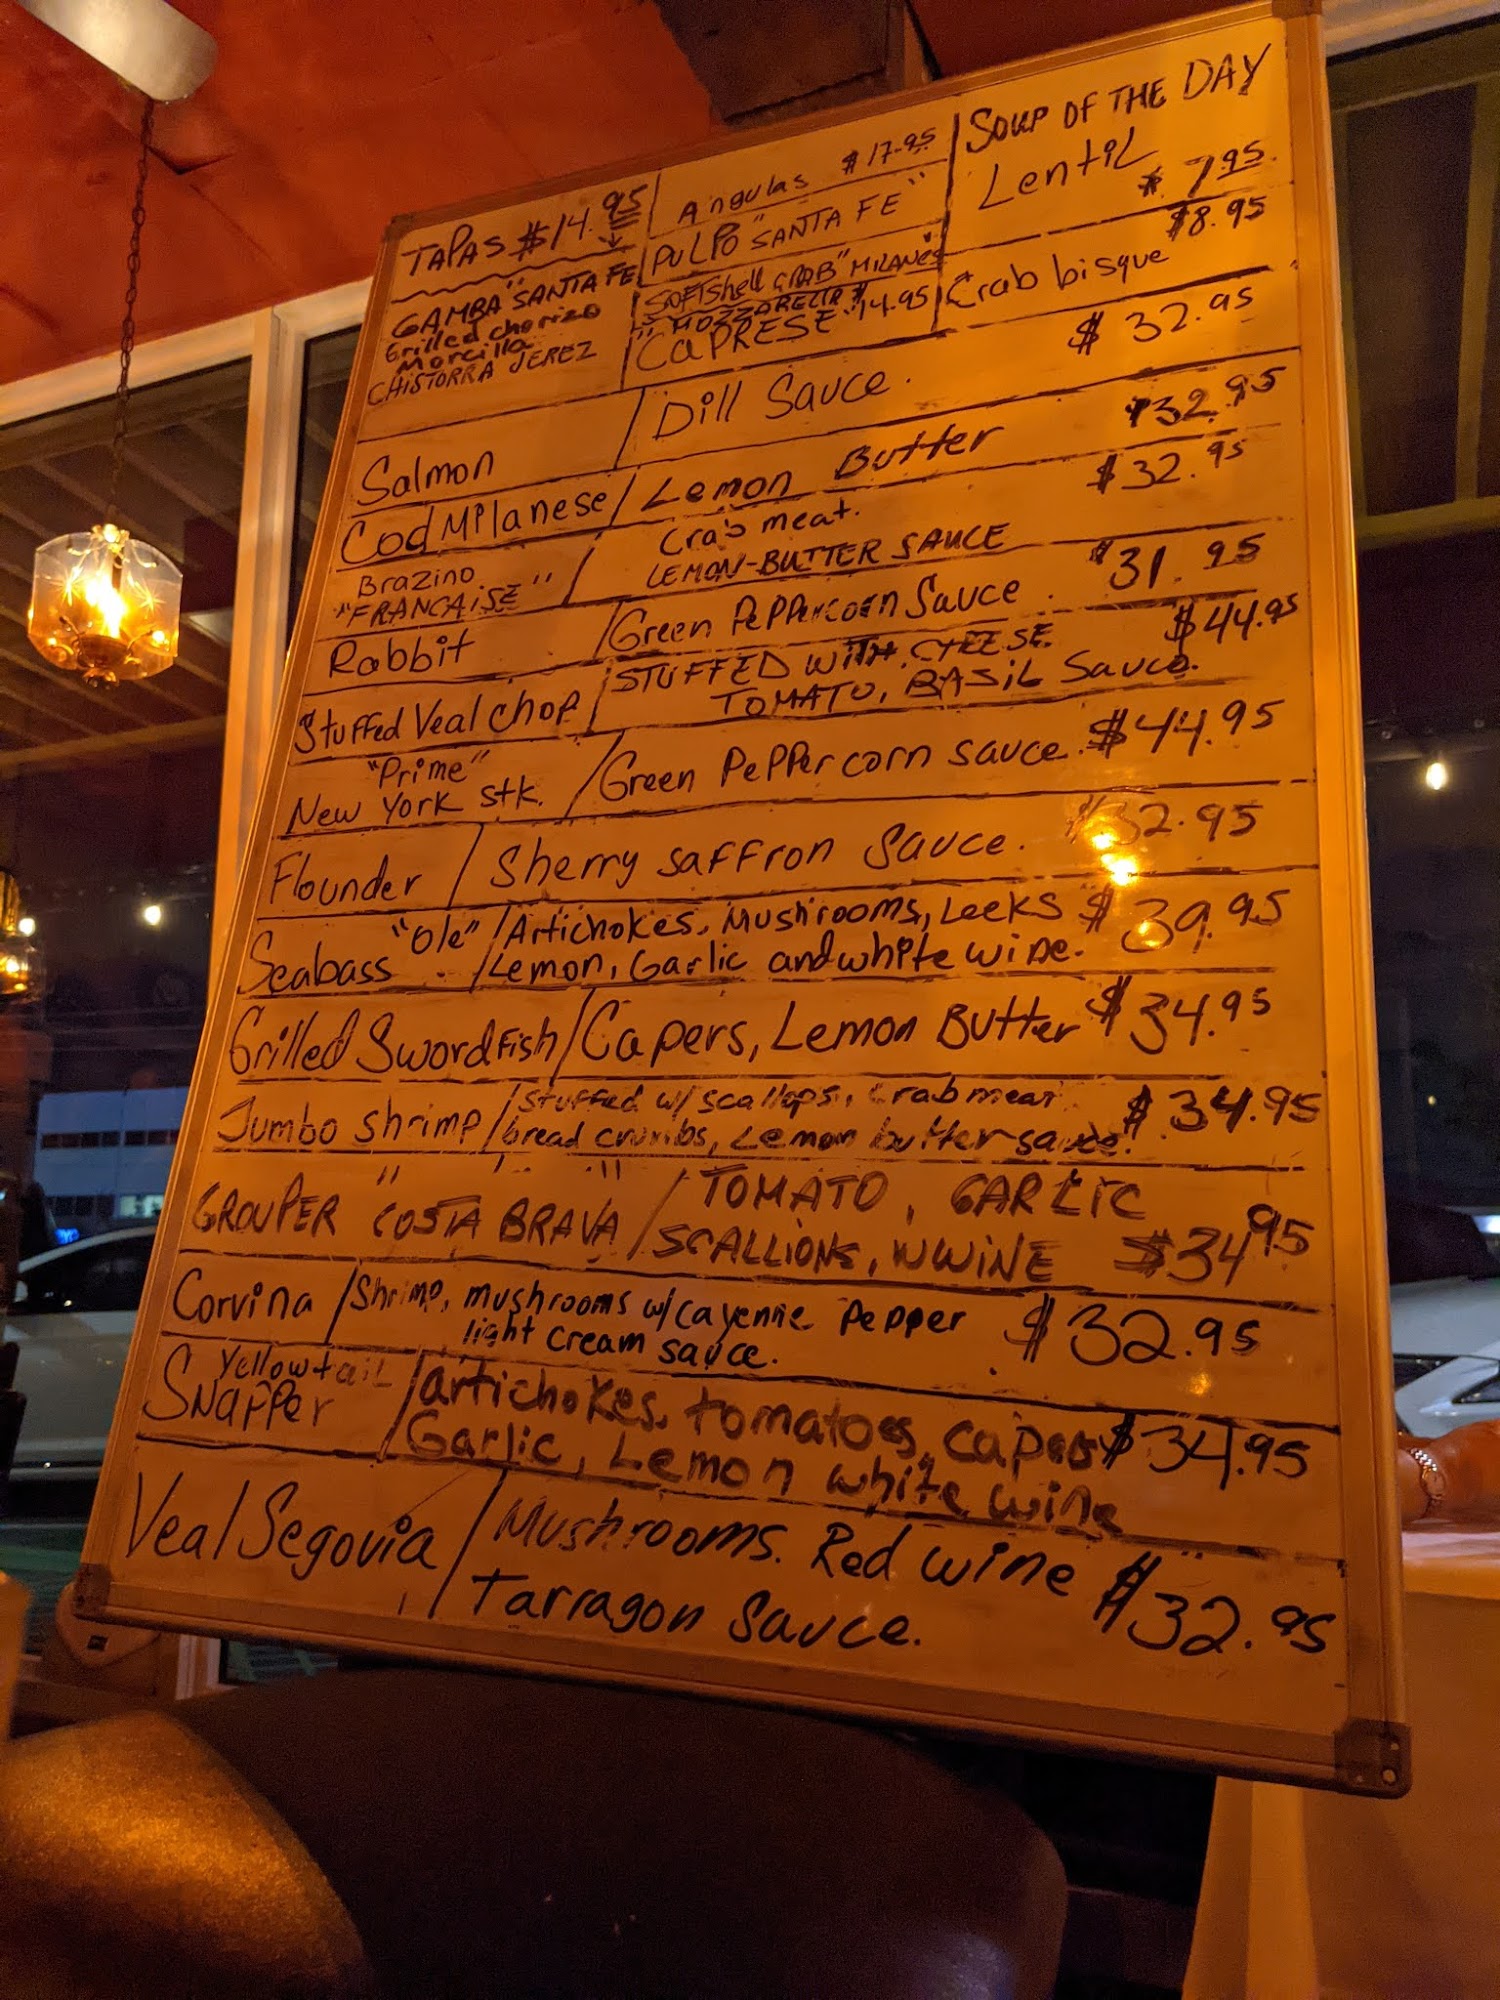 TAPAS $14.95
GAMBA "SANTA FE
Grilled chorizo
Morcilla
CHISTORRA JEREZ
Angulas $17.95
PULPO "SANTA FE"
SOFTShell CRAB "MILANES
"MOZZARELLA"
CAPRESE 14.95
SOUP OF THE DAY
Lentil
$7.95
$8.95
Crab bisque
Salmon / Dill Sauce. $32.95
Cod Milanese / Lemon Butter $32.95
Brazino
"FRANCAISE" / Crab meat.
LEMON-BUTTER SAUCE $32.95
Rabbit / Green Peppercorn Sauce. $31.95
Stuffed Veal chop / STUFFED WITH CHEESE. $44.95
TOMATO, BASIL Sauce.
"Prime"
New York stk. / Green Peppercorn sauce. $44.95
Flounder / Sherry saffron Sauce. $32.95
Seabass "Ole" / Artichokes, Mushrooms, Leeks $39.95
Lemon, Garlic and white wine.
Grilled Swordfish / Capers, Lemon Butter $34.95
Jumbo Shrimp / Stuffed w/ scallops, crab meat $34.95
bread crumbs, Lemon butter sauce.
GROUPER "COSTA BRAVA" / TOMATO, GARLIC
SCALLIONS, WWINE $34.95
Corvina / Shrimp, mushrooms w/ cayenne Pepper $32.95
light cream sauce.
Yellowtail
SNAPPER / artichokes, tomatoes, capers $34.95
Garlic, Lemon white wine
Veal Segovia / Mushrooms. Red wine $32.95
Tarragon Sauce.